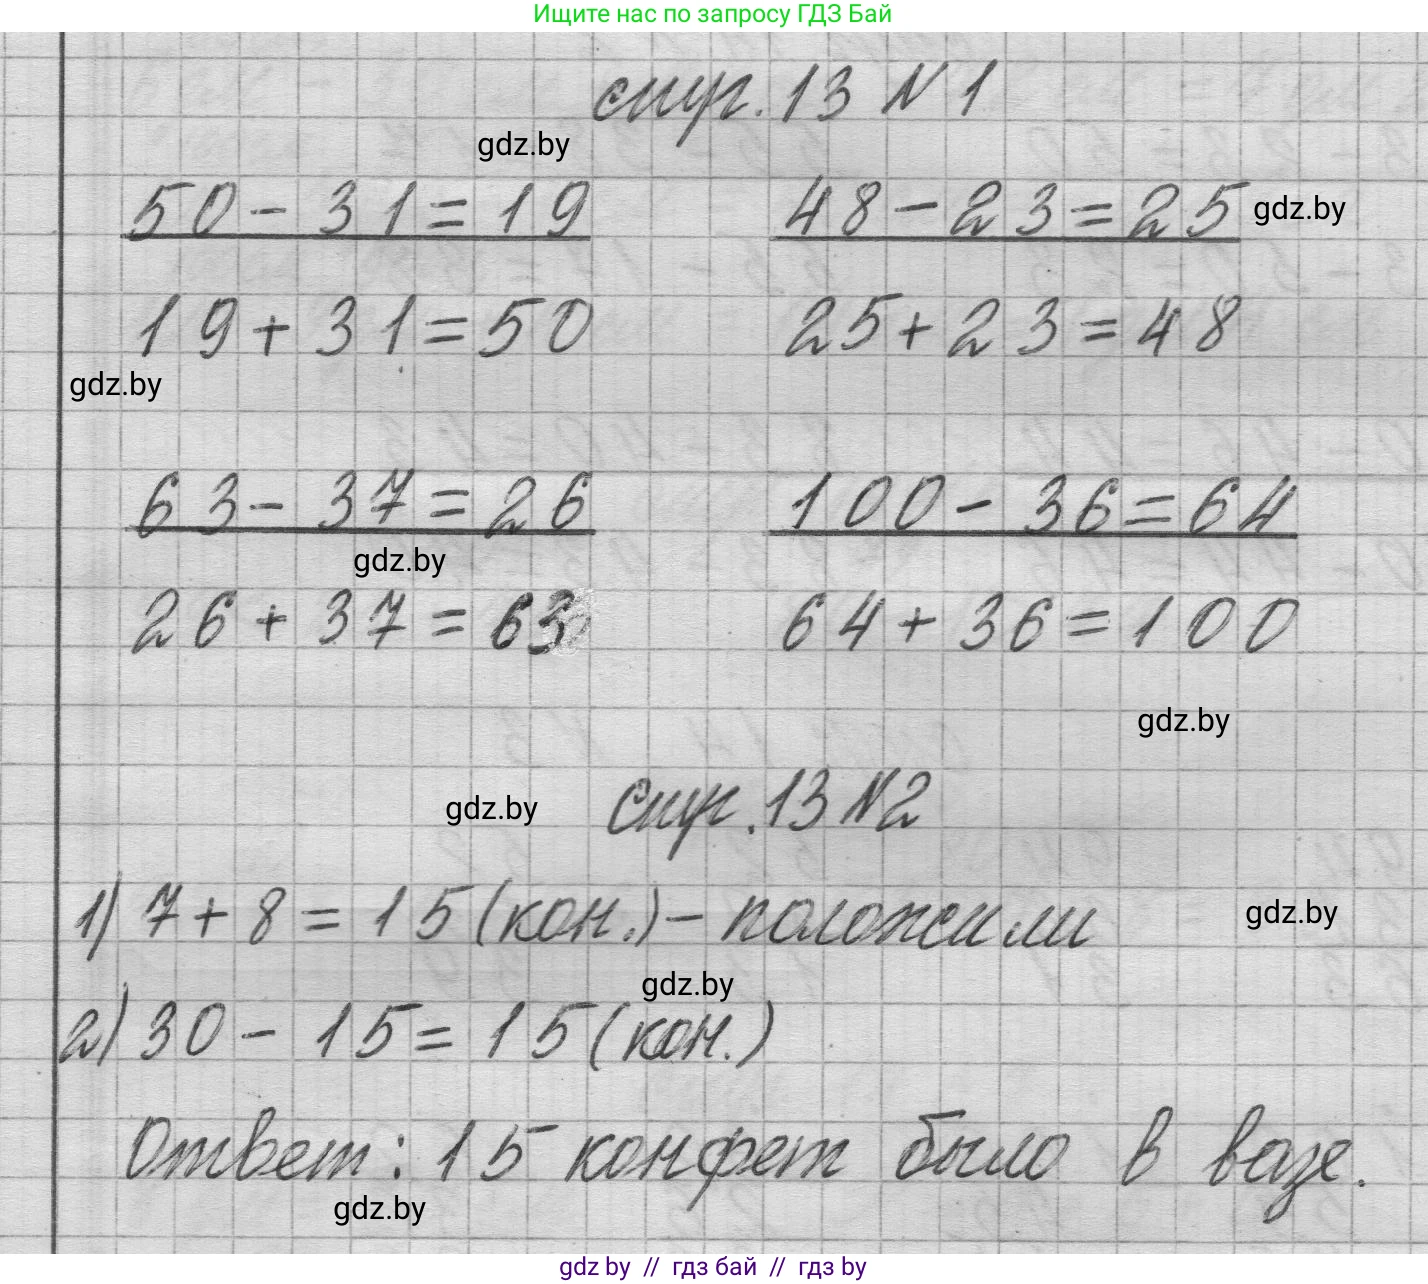 Ищите нас по запросу ГДЗ Бай
стр. 13 N 1
gdz.by
50 - 31 = 19
48 - 23 = 25
gdz.by
19 + 31 = 50
25 + 23 = 48
gdz.by
63 - 37 = 26
100 - 36 = 64
gdz.by
26 + 37 = 63
64 + 36 = 100
gdz.by
gdz.by
стр. 13 N2
1) 7 + 8 = 15 (кон.) - положили
gdz.by
gdz.by
2) 30 - 15 = 15 (кон.)
Ответ: 15 конфет было в вазе.
gdz.by
gdz by // гдз бай // гдз by